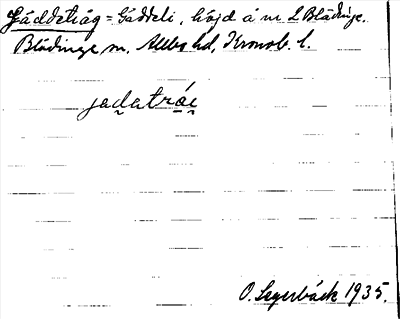 Gäddetråg = Gäddeli, höjd å m L Blädinge.
Blädinge sn, Allbo hd, Kronob. l.
jadatråg
O. Segerbäck 1935.